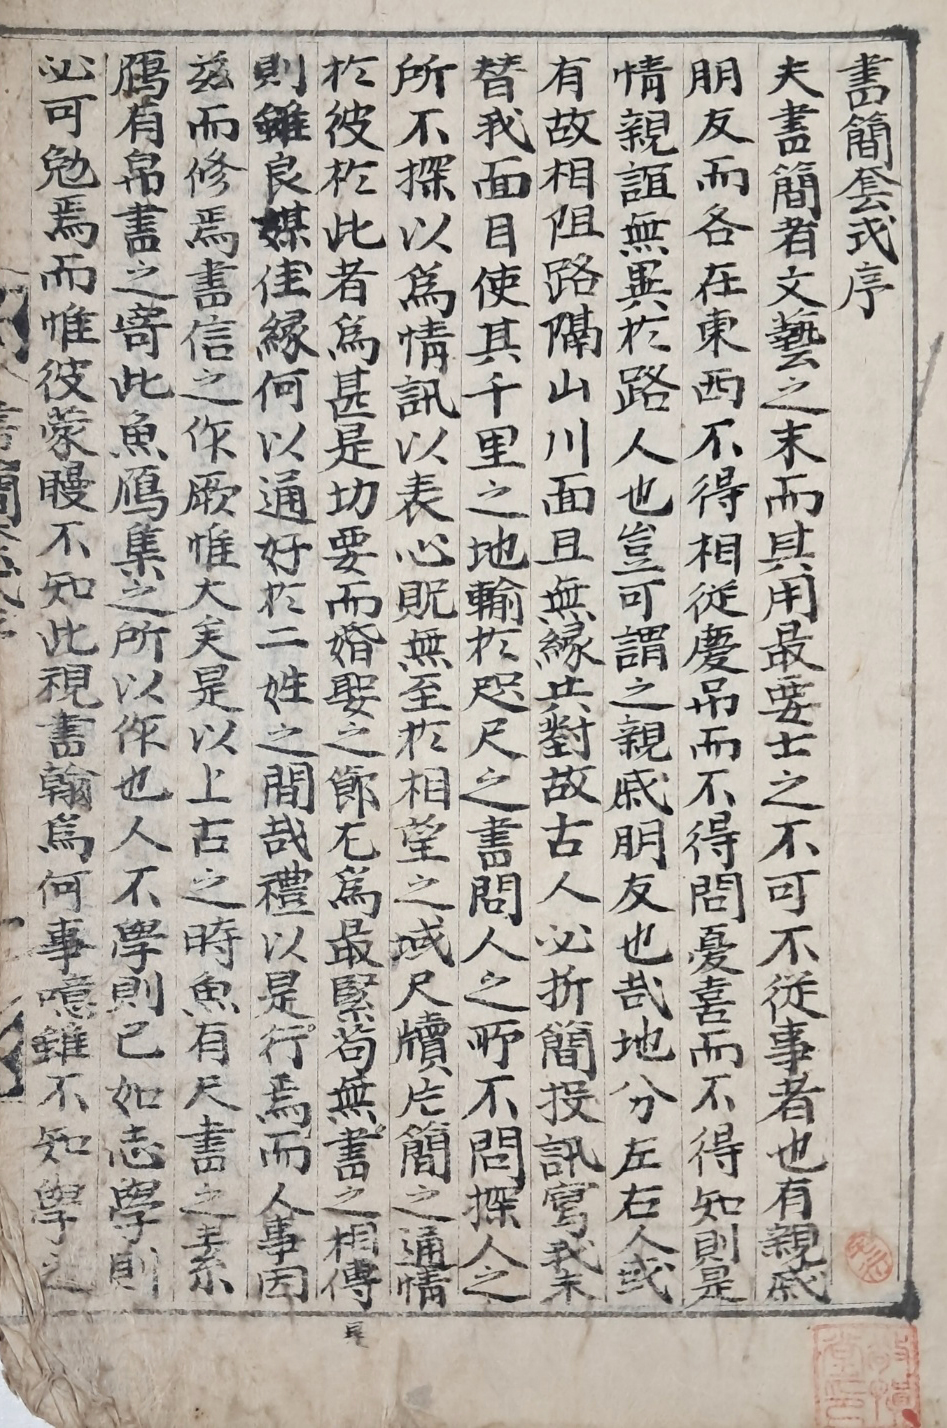 書簡套式序
夫書簡者文藝之末而其用最要士之不可不從事者也有親戚
朋友而各在東西不得相從慶吊而不得問憂喜而不得知則是
情親誼無異於路人也豈可謂之親戚朋友也哉地分左右人或
有故相阻路隔山川面且無緣共對故古人必折簡投訊寫我末
替我面目使其千里之地輸於咫尺之書問人之所不問探人之
所不探以爲情訊以表心貺無至於相望之域尺牘片簡之通情
於彼於此者爲甚是切要而婚娶之節尤爲最緊苟無書之相傳
則雖良媒佳緣何以通好於二姓之間哉禮以是行焉而人事因
玆而修焉書信之作厥惟大矣是以上古之時魚有尺書之素
鴈有帛書之寄此魚鴈集之所以作也人不學則已如志學則
必可勉焉而惟彼蒙瞍不知此視書翰爲何事噫雖不知學之
是
書簡套式序